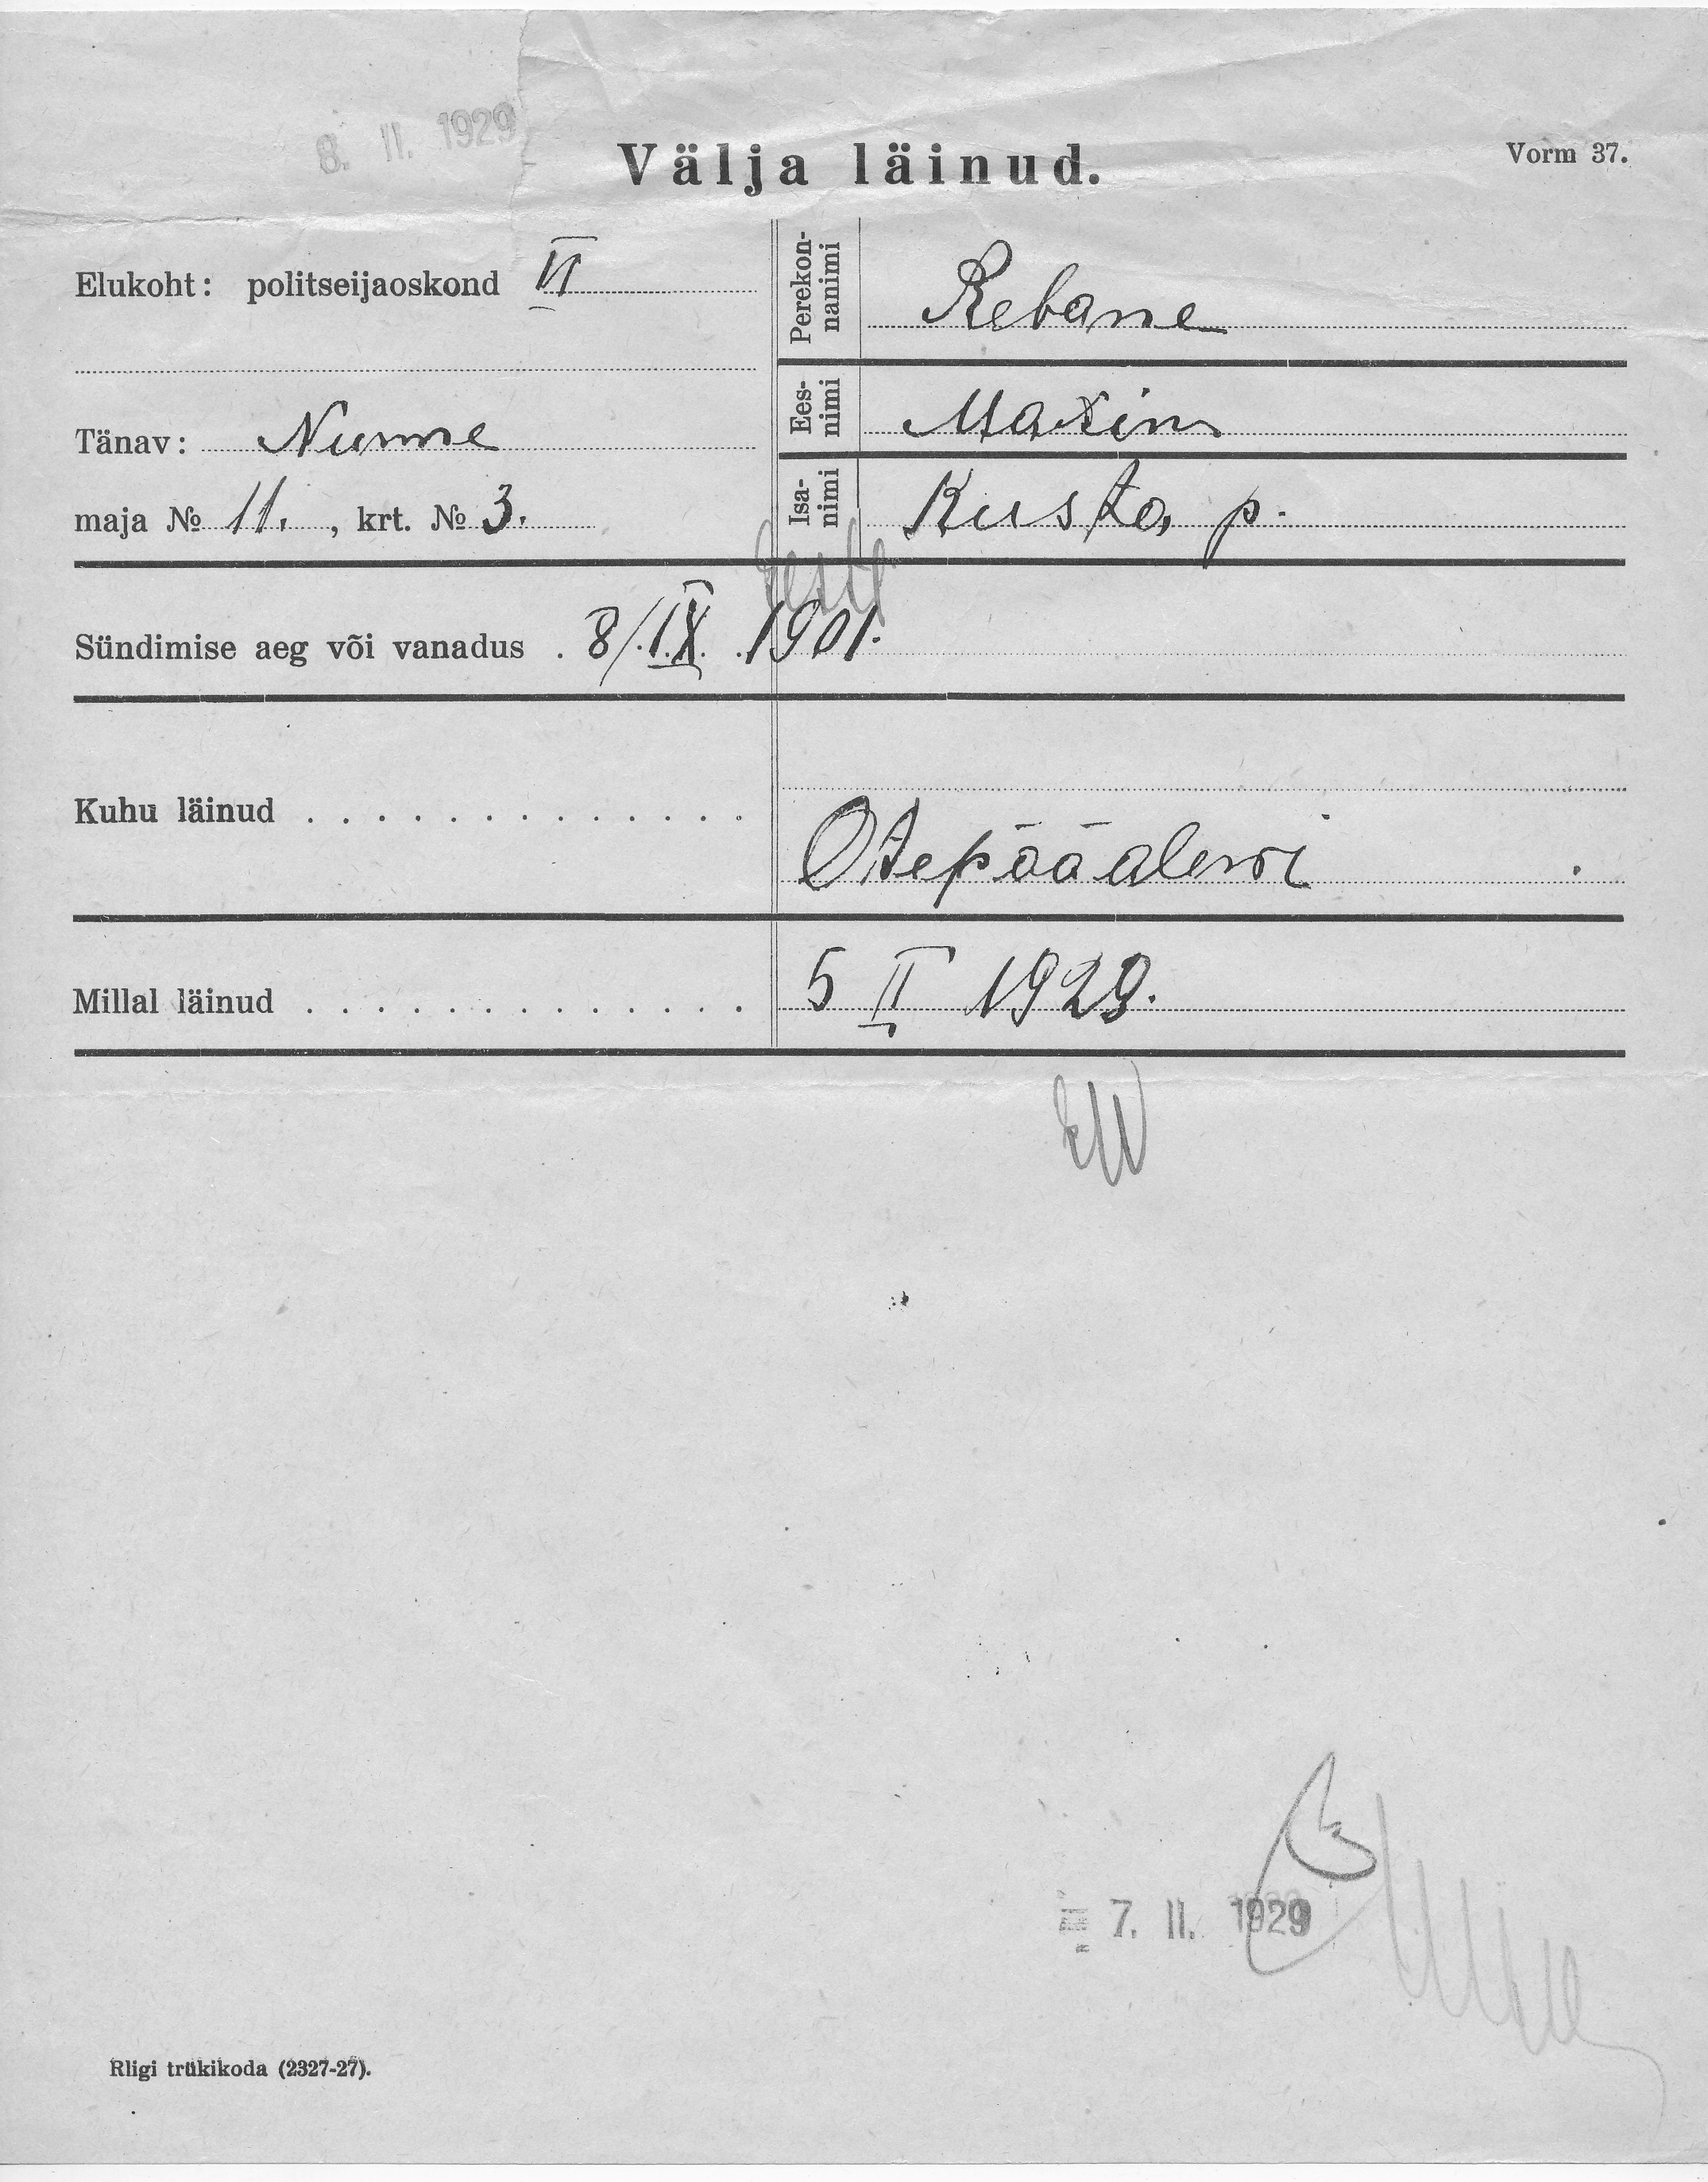 8. II. 1929
Välja läinud.
Vorm 37.
Elukoht: politseijaoskond VI
Perekonnanimi Rebane
Tänav: Nurme
Eesnimi Maxim
maja № 11. , krt. № 3.
Isanimi Kusta p.
Eesti
Sündimise aeg või vanadus . 8/IX 1901.
Kuhu läinud . . . . . . . . . . . . .
Otepää alevi
Millal läinud . . . . . . . . . . . . .
5 II 1929.
EW
7. II. 1929
Riigi trükikoda (2327-27).